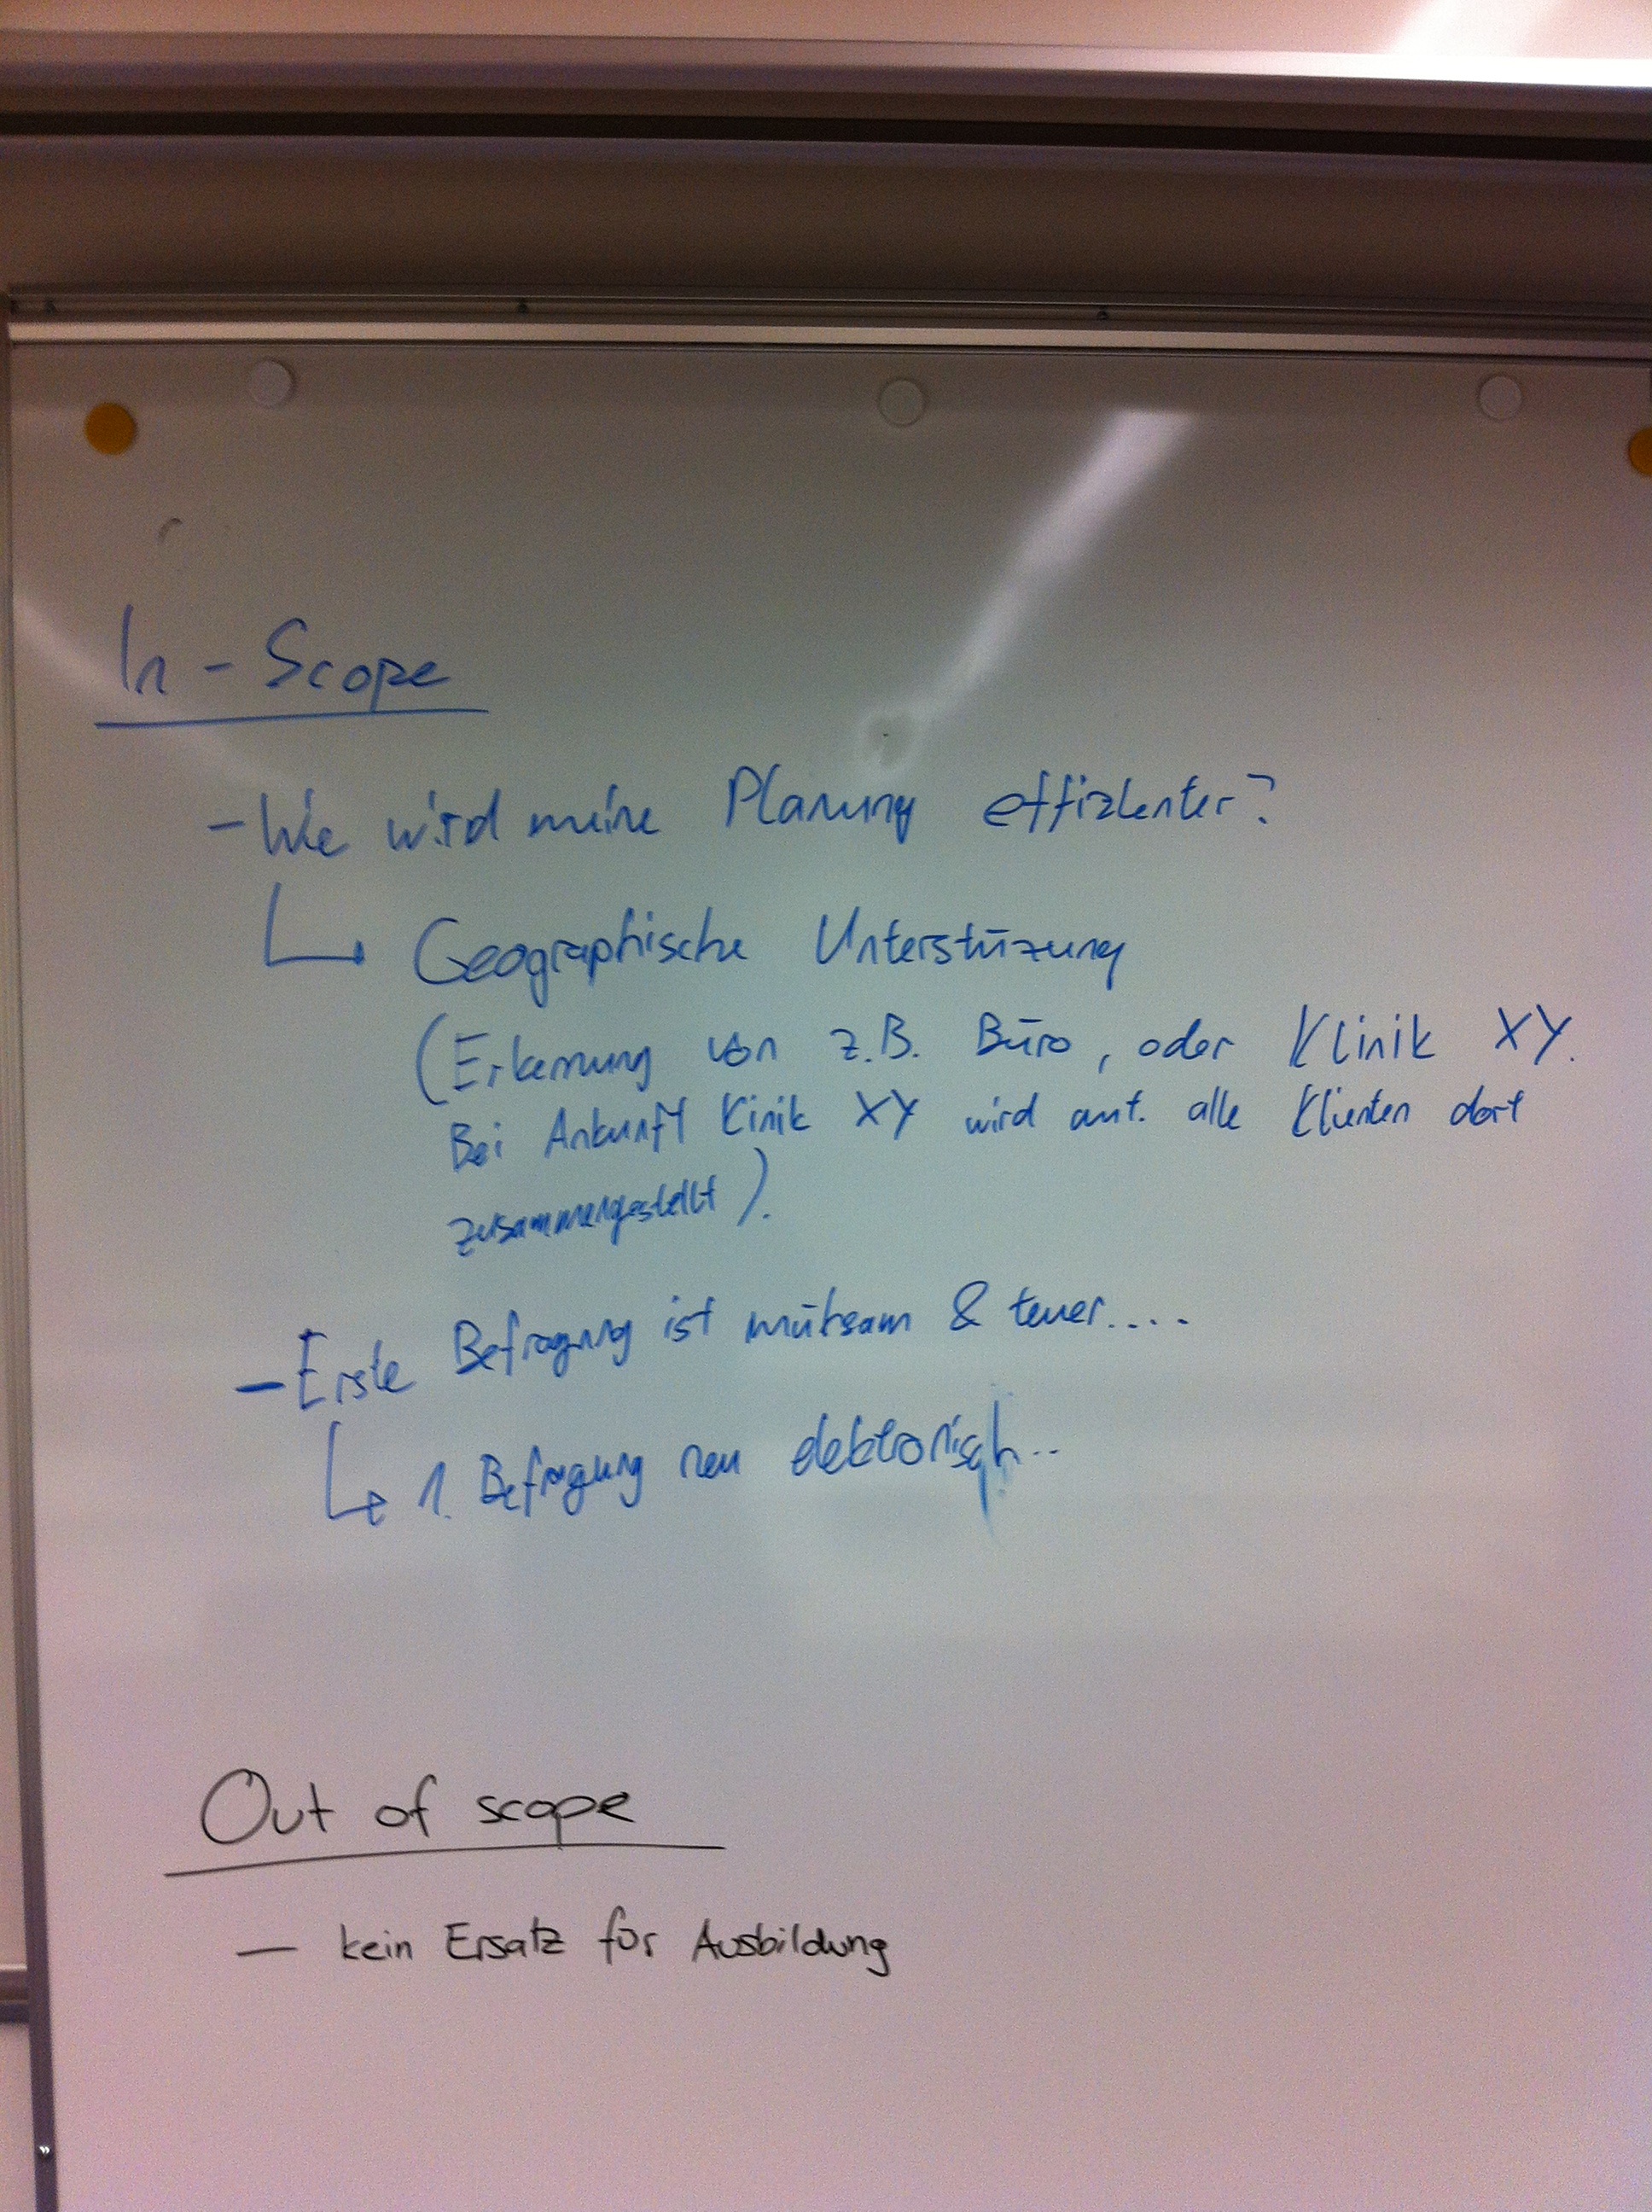 In - Scope
- Wie wird meine Planung effizienter?
↳ Geographische Unterstüzung
(Erkennung von z.B. Büro, oder Klinik XY.
Bei Ankunft Kinik XY wird aut. alle Klienten dort
zusammengestellt).
- Erste Befragung ist mühsam & teuer....
↳ 1. Befragung neu elektronisch...
Out of scope
- kein Ersatz für Ausbildung